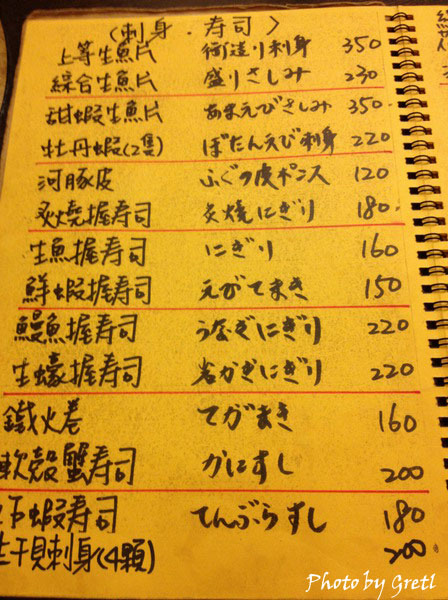 〈刺身．寿司〉
上等生魚片 街造り刺身 350
綜合生魚片 盛りさしみ 230
甜蝦生魚片 あまえびさしみ 350
牡丹蝦(2隻) ぼたんえび刺身 220
河豚皮 ふぐの皮ポンス 120
炙燒握寿司 炙焼にぎり 180
生魚握寿司 にぎり 160
鮮蝦握寿司 えびてまき 150
鰻魚握寿司 うなぎにぎり 220
生蠔握寿司 岩かぎにぎり 220
鐵火卷 てがまき 160
軟殼蟹寿司 かにすし 200
蝦寿司 てんぶらすし 180
生干貝刺身(4顆) 200
Photo by Gretl